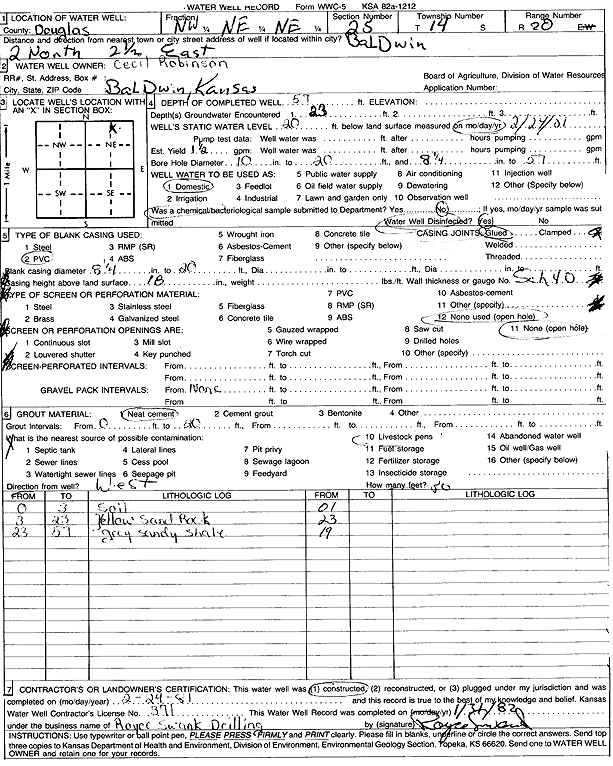 WATER WELL RECORD Form WWC-5 KSA 82a-1212
1 LOCATION OF WATER WELL: Fraction Section Number Township Number Range Number
County: Douglas NW ¼ NE ¼ NE ¼ 25 T 14 S R 20 EW
Distance and direction from nearest town or city street address of well if located within city? BALDWIN
2 North 2½ East
2 WATER WELL OWNER: Cecil Robinson
RR#, St. Address, Box # : Board of Agriculture, Division of Water Resources
City, State, ZIP Code : BALDWIN, KANSAS Application Number:
3 LOCATE WELL'S LOCATION WITH AN "X" IN SECTION BOX: 4 DEPTH OF COMPLETED WELL 57 ft. ELEVATION:
N Depth(s) Groundwater Encountered 1. 23 ft. 2. ft. 3. ft.
WELL'S STATIC WATER LEVEL 20 ft. below land surface measured on mo/day/yr 2/24/81
NW NE X Pump test data: Well water was ft. after hours pumping gpm
Est. Yield 1½ gpm: Well water was ft. after hours pumping gpm
1 Mile W E Bore Hole Diameter 10 in. to 20 ft., and 8¼ in. to 57 ft.
WELL WATER TO BE USED AS: 5 Public water supply 8 Air conditioning 11 Injection well
SW SE 1 Domestic 3 Feedlot 6 Oil field water supply 9 Dewatering 12 Other (Specify below)
2 Irrigation 4 Industrial 7 Lawn and garden only 10 Observation well
Was a chemical/bacteriological sample submitted to Department? Yes No ; If yes, mo/day/yr sample was sub
S mitted Water Well Disinfected? Yes No
5 TYPE OF BLANK CASING USED: 5 Wrought iron 8 Concrete tile CASING JOINTS: Glued Clamped
1 Steel 3 RMP (SR) 6 Asbestos-Cement 9 Other (specify below) Welded
2 PVC 4 ABS 7 Fiberglass Threaded
Blank casing diameter 8¼ in. to 20 ft., Dia in. to ft., Dia in. to ft.
Casing height above land surface 18 in., weight lbs./ft. Wall thickness or gauge No. Sch 40
TYPE OF SCREEN OR PERFORATION MATERIAL: 7 PVC 10 Asbestos-cement
1 Steel 3 Stainless steel 5 Fiberglass 8 RMP (SR) 11 Other (specify)
2 Brass 4 Galvanized steel 6 Concrete tile 9 ABS 12 None used (open hole)
SCREEN OR PERFORATION OPENINGS ARE: 5 Gauzed wrapped 8 Saw cut 11 None (open hole)
1 Continuous slot 3 Mill slot 6 Wire wrapped 9 Drilled holes
2 Louvered shutter 4 Key punched 7 Torch cut 10 Other (specify)
SCREEN-PERFORATED INTERVALS: From ft. to ft., From ft. to ft.
From ft. to ft., From ft. to ft.
GRAVEL PACK INTERVALS: From None ft. to ft., From ft. to ft.
From ft. to ft., From ft. to ft.
6 GROUT MATERIAL: 1 Neat cement 2 Cement grout 3 Bentonite 4 Other
Grout Intervals: From 0 ft. to ft., From ft. to ft., From ft. to ft.
What is the nearest source of possible contamination: 10 Livestock pens 14 Abandoned water well
1 Septic tank 4 Lateral lines 7 Pit privy 11 Fuel storage 15 Oil well/Gas well
2 Sewer lines 5 Cess pool 8 Sewage lagoon 12 Fertilizer storage 16 Other (specify below)
3 Watertight sewer lines 6 Seepage pit 9 Feedyard 13 Insecticide storage
Direction from well? West How many feet? 50
FROM TO LITHOLOGIC LOG FROM TO LITHOLOGIC LOG
0 3 Soil 01
3 23 Yellow Sand Rock 23
23 57 grey sandy shale 19
7 CONTRACTOR'S OR LANDOWNER'S CERTIFICATION: This water well was (1) constructed, (2) reconstructed, or (3) plugged under my jurisdiction and was
completed on (mo/day/year) 2-24-81 and this record is true to the best of my knowledge and belief. Kansas
Water Well Contractor's License No. 371 This Water Well Record was completed on (mo/day/yr)
under the business name of Royce Swank Drilling by (signature) Royce Swank
INSTRUCTIONS: Use typewriter or ball point pen, PLEASE PRESS FIRMLY and PRINT clearly. Please fill in blanks, underline or circle the correct answers. Send top
three copies to Kansas Department of Health and Environment, Division of Environment, Environmental Geology Section, Topeka, KS 66620. Send one to WATER WELL
OWNER and retain one for your records.